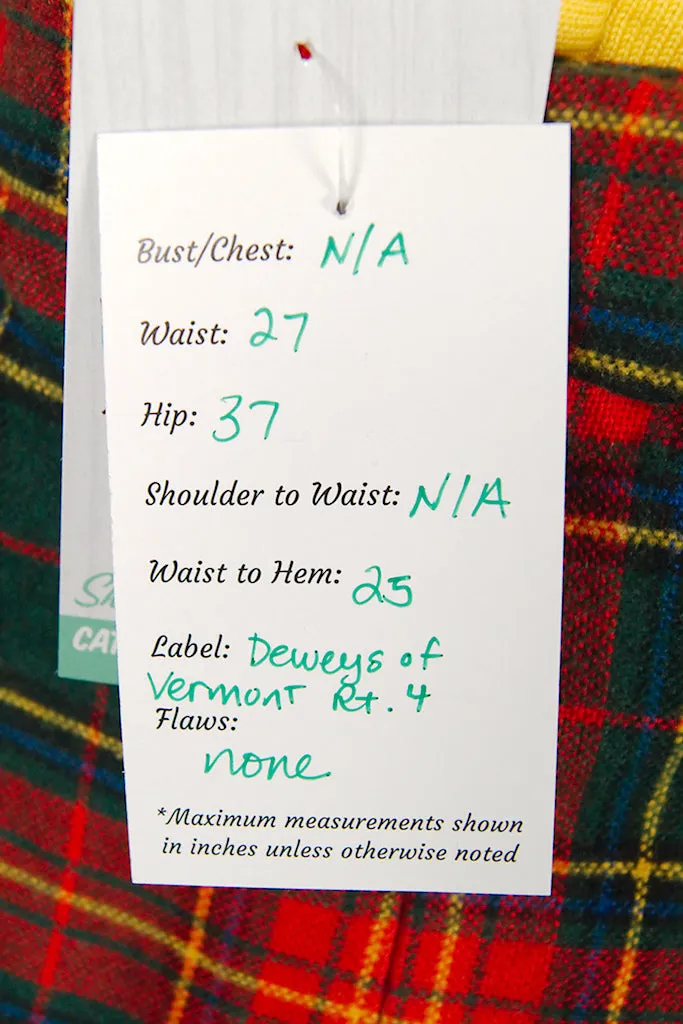 Bust/Chest: N/A
Waist: 27
Hip: 37
Shoulder to Waist: N/A
Waist to Hem: 25
Label: Deweys of
Vermont Rt. 4
Flaws:
none
*Maximum measurements shown
in inches unless otherwise noted